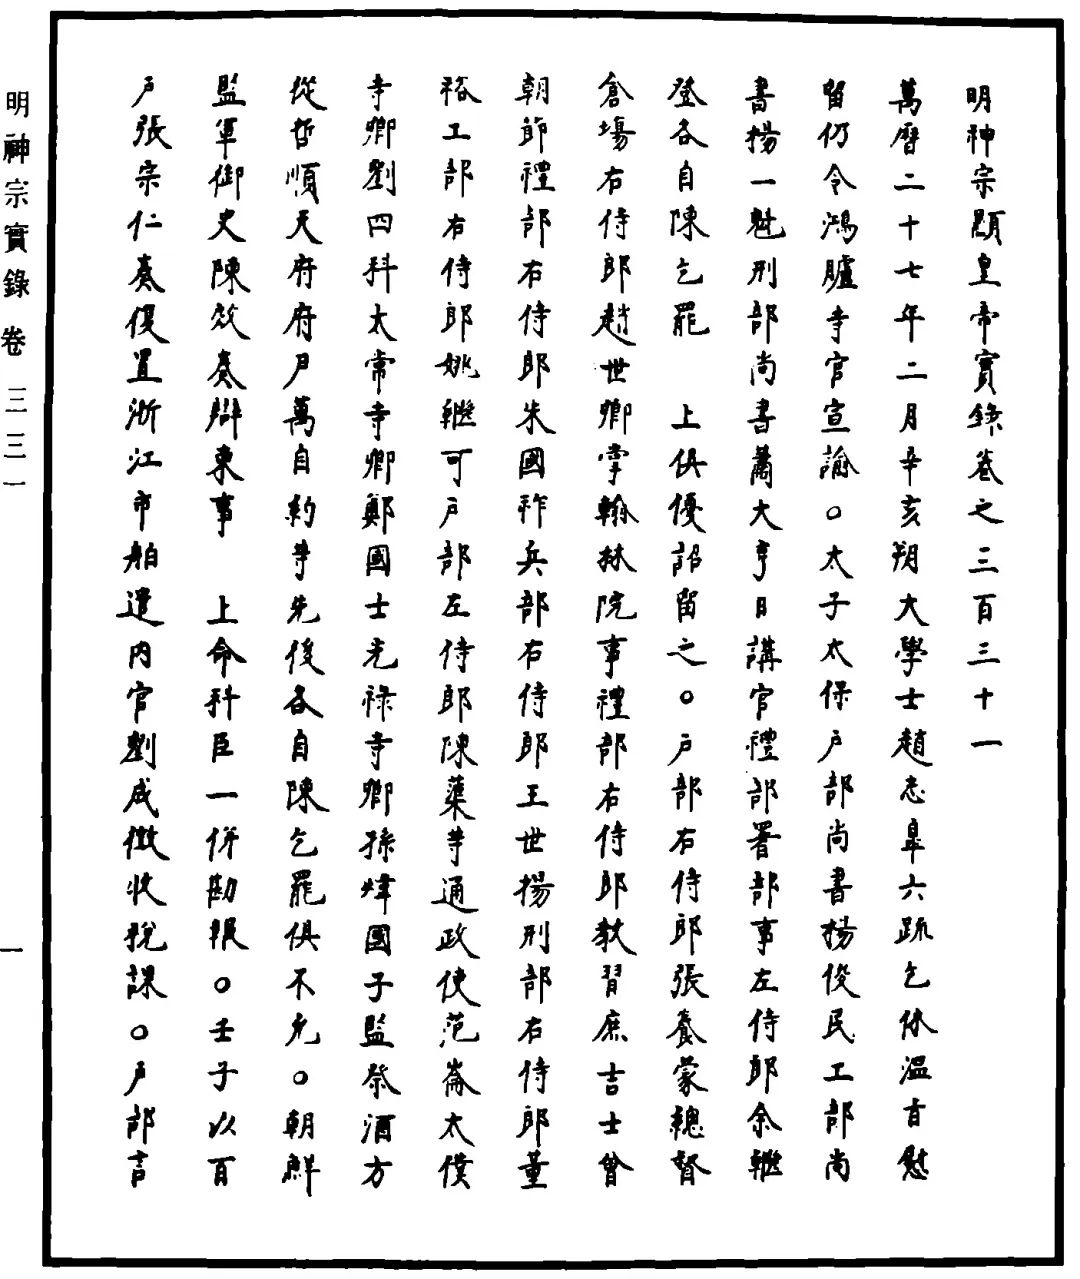 明神宗顯皇帝實錄卷之三百三十一
萬曆二十七年二月辛亥朔大學士趙志皐六疏乞休溫旨慰
留仍令鴻臚寺官宣諭○太子太保戶部尚書楊俊民工部尚
書楊一魁刑部尚書蕭大亨日講官禮部署部事左侍郎余繼
登各自陳乞罷　上俱優詔留之○戶部右侍郎張養蒙總督
倉塲右侍郎趙世卿掌翰林院事禮部右侍郎教習庶吉士曾
朝節禮部右侍郎朱國祚兵部右侍郎王世揚刑部右侍郎董
裕工部右侍郎姚繼可戶部左侍郎陳蕖等通政使范崙太僕
寺卿劉四科太常寺卿鄭國士光祿寺卿孫煒國子監祭酒方
從哲順天府府尹萬自約等先後各自陳乞罷俱不允○朝鮮
監軍御史陳效奏辯東事　上命科臣一併勘報○壬子以百
戶張宗仁奏復置浙江市舶遣內官劉成徵收稅課○戶部言
明神宗實錄　卷三三一
一